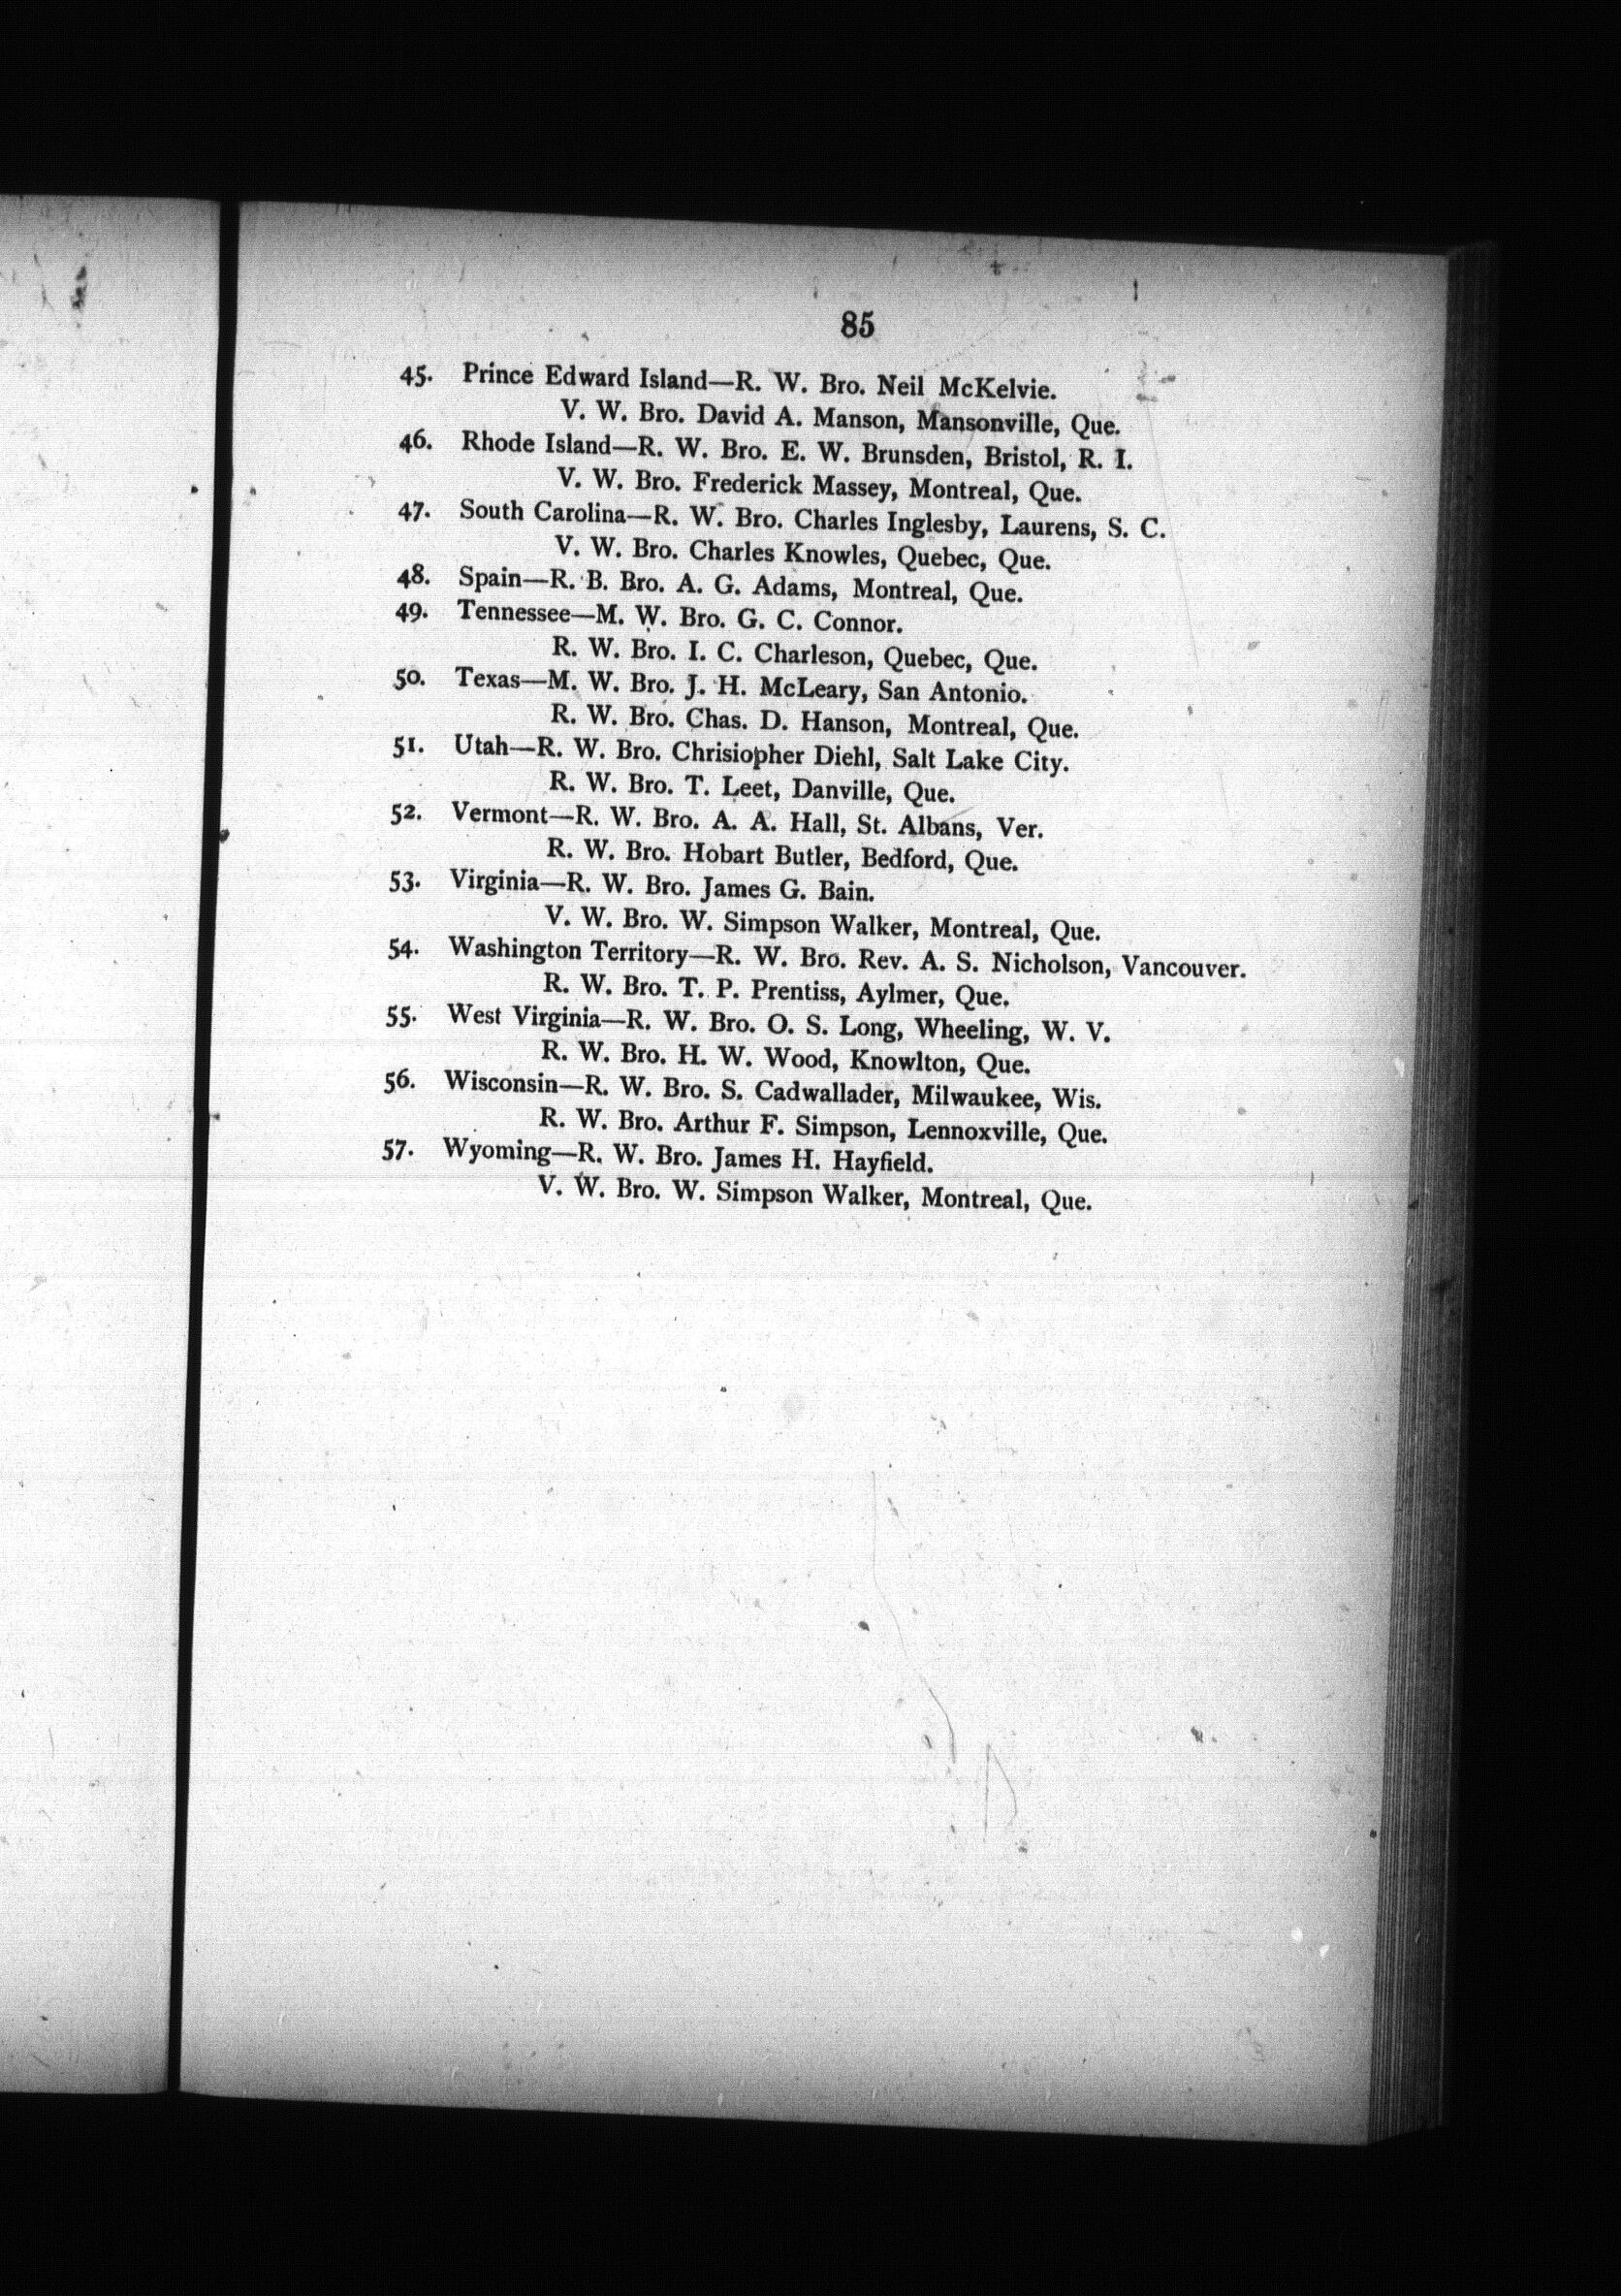 85
45. Prince Edward Island—R. W. Bro. Neil McKelvie.
V. W. Bro. David A. Manson, Mansonville, Que.
46. Rhode Island—R. W. Bro. E. W. Brunsden, Bristol, R. I.
V. W. Bro. Frederick Massey, Montreal, Que.
47. South Carolina—R. W. Bro. Charles Inglesby, Laurens, S. C.
V. W. Bro. Charles Knowles, Quebec, Que.
48. Spain—R. B. Bro. A. G. Adams, Montreal, Que.
49. Tennessee—M. W. Bro. G. C. Connor.
R. W. Bro. I. C. Charleson, Quebec, Que.
50. Texas—M. W. Bro. J. H. McLeary, San Antonio.
R. W. Bro. Chas. D. Hanson, Montreal, Que.
51. Utah—R. W. Bro. Chrisiopher Diehl, Salt Lake City.
R. W. Bro. T. Leet, Danville, Que.
52. Vermont—R. W. Bro. A. A. Hall, St. Albans, Ver.
R. W. Bro. Hobart Butler, Bedford, Que.
53. Virginia—R. W. Bro. James G. Bain.
V. W. Bro. W. Simpson Walker, Montreal, Que.
54. Washington Territory—R. W. Bro. Rev. A. S. Nicholson, Vancouver.
R. W. Bro. T. P. Prentiss, Aylmer, Que.
55. West Virginia—R. W. Bro. O. S. Long, Wheeling, W. V.
R. W. Bro. H. W. Wood, Knowlton, Que.
56. Wisconsin—R. W. Bro. S. Cadwallader, Milwaukee, Wis.
R. W. Bro. Arthur F. Simpson, Lennoxville, Que.
57. Wyoming—R. W. Bro. James H. Hayfield.
V. W. Bro. W. Simpson Walker, Montreal, Que.